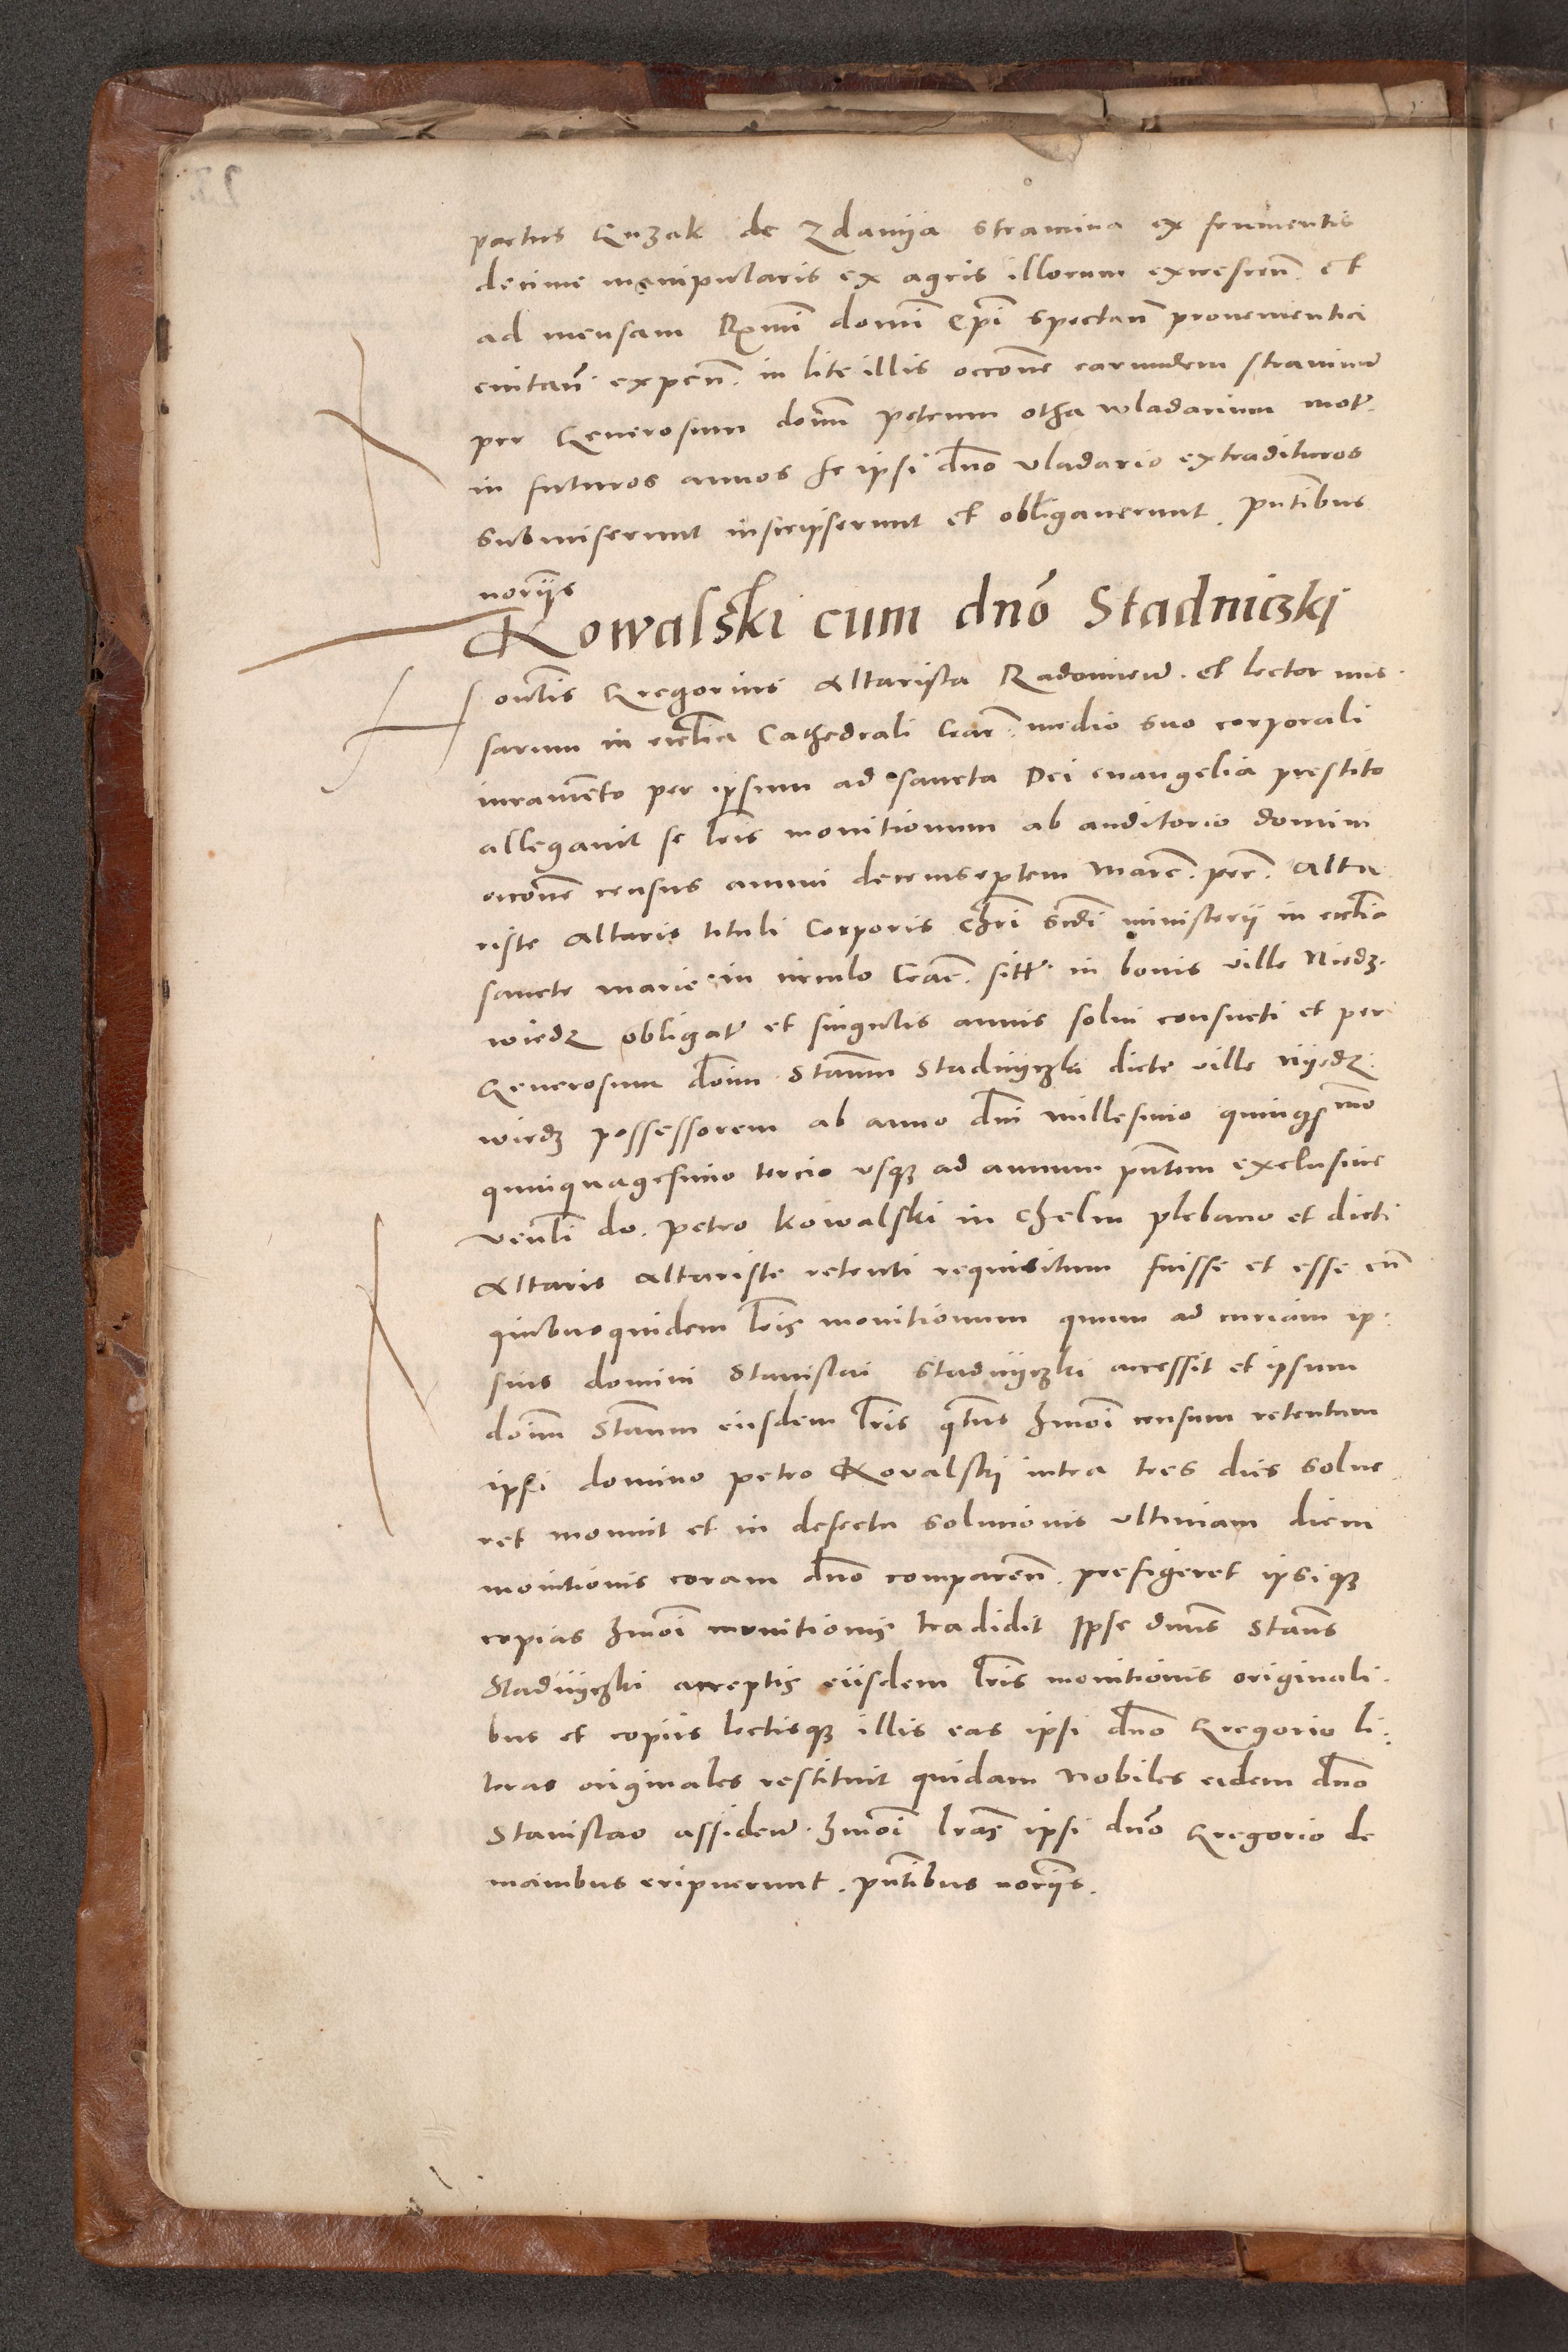 pactus Guzak de Zdanija stramina ex frumentis
decime manipularis ex agris illorum excrescen̄. et
ad mensam Rx̄mi domī Ep̄i spectan̄ provenientia
evitan̄ expen̄. in lite illis occōne earundem straminū
per Generosum dom̄ Petrum otha wladarium mot̄.
in futuros annos se ipsi dn̄o vladario extradituros
submiserunt inscripserunt et obligauerunt. Pn̄tibus
norijs
Kowalski cum dn̄o Stadniczki
Honl̄is Gregorius Altarista Radomien̄. et lector mis-
sarum in eccl̄ia Cathedrali Crac̄. medio suo corporali
iuramēto per ipsum ad sancta Dei euangelia prestito
allegauit se l̄ris monitionum ab auditorio domini
occōne census annui decemseptem Marc̄. pec̄. Alta
riste Altaris tituli Corporis Chr̄i sc̄di ministerij in eccl̄ia
sancte marie in circulo Crac̄. sitt̄. in bonis ville Niedz-
wiedz obligat̄ et singulis annis solui consueti et per
Generosum dom̄. Stan̄m Stadnijczki dicte ville nijedz-
wiedz possessorem ab anno dn̄i millesimo quinḡsmo
quinquagesimo tercio vsqꝫ ad annum pn̄tem exclusiue
Venl̄i do. Petro Kowalski in Chelm plebano et dicti
Altaris Altariste retenti requisitum fuisse et esse cū
quibusquidem l̄ris monitionum quum ad curiam ip-
sius domini Stanislai Stadnijczki accessit et ipsum
dom̄ Stan̄m eiisdem l̄ris qt̄us h̄mōi censum retentum
ipsi domino petro Kovalskj intra tres dies solue
ret monuit et in defectu solucionis vltimam diem
monitionis coram dn̄o comparen̄. prefigeret ipsiqꝫ
copias h̄mōi monitionis tradidit Ipse dn̄us Stan̄s
Stadnijczki acceptis eiisdem l̄ris monitionis originali-
bus et copiis lectisqꝫ illis eas ipsi dn̄o Gregorio li-
teras originales restituit quidam Nobiles eidem dn̄o
Stanislao assiden̄. h̄mōi lr̄as ipsi dn̄o Gregorio de
manibus eripuerunt. Pn̄tibus norijs.